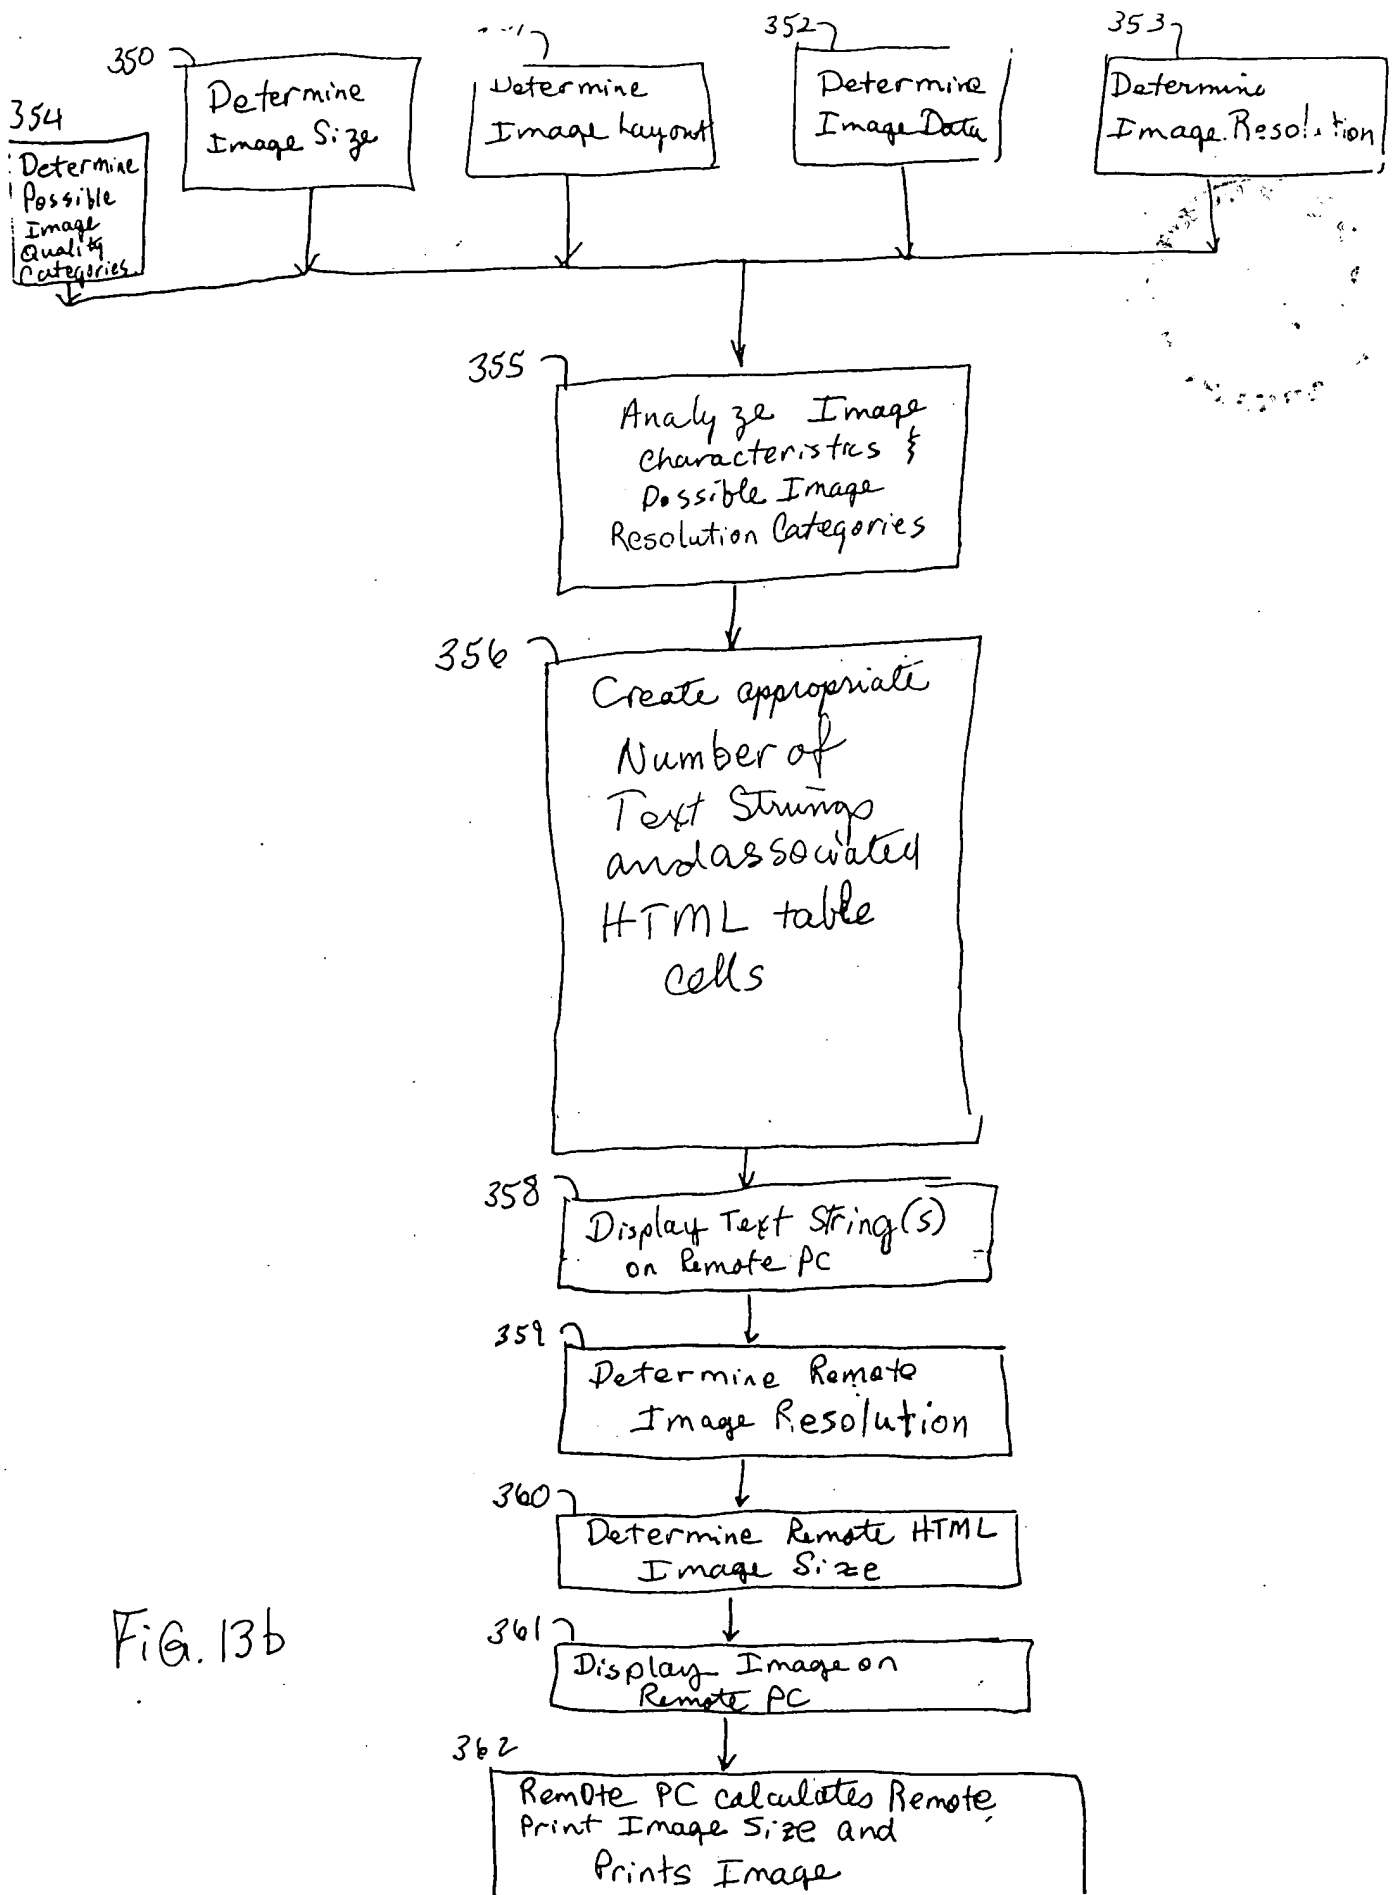 350
Determine
Image Size
Determine
Image Layout
352
Determine
Image Data
353
Determine
Image Resolution
354
Determine
Possible
Image
Quality
Categories
355
Analyze Image
characteristics &
Possible Image
Resolution Categories
356
Create appropriate
Number of
Text Strings
and associated
HTML table
cells
358
Display Text String(s)
on Remote PC
359
Determine Remote
Image Resolution
360
Determine Remote HTML
Image Size
361
Display Image on
Remote PC
362
Remote PC calculates Remote
Print Image Size and
Prints Image
FiG. 13b